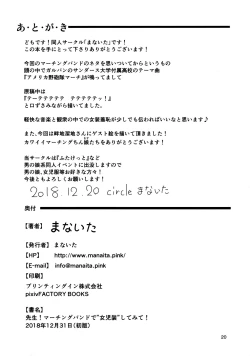 あ・と・が・き
どもです!同人サークル「まないた」です!
この本を手にとって下さりありがとうございます!
今回のマーチングバンドのネタを思いついてからというもの
頭の中でガルパンのサンダース大学付属高校のテーマ曲
『アメリカ野砲隊マーチ』が鳴ってまして
原稿中は
『テーテテテテテ テテテテテッ!』
と口ずさみながら描いてました。
軽快な音楽と観衆の中での女装羞恥が少しでも伝わればいいなと思います♪
また、今回は畔地屋亀さんにゲスト絵を描いて頂きました!
カワイイマーチングちん娘たちをありがとうございます!
当サークルは『ふたけっと』など
男の娘系同人イベントに出没しますので
男の娘、女児服等お好きな方々!
今後ともよろしくお願いします!
2018.12.20 circle まないた
奥付
【著者】 まないた
【発行者】 まないた
【HP】 http://www.manaita.pink/
【E-mail】 info@manaita.pink
【印刷】
プリンティングイン株式会社
pixivFACTORY BOOKS
【書名】
先生!マーチングバンドで"女児装"してみて!
2018年12月31日(初版)
20